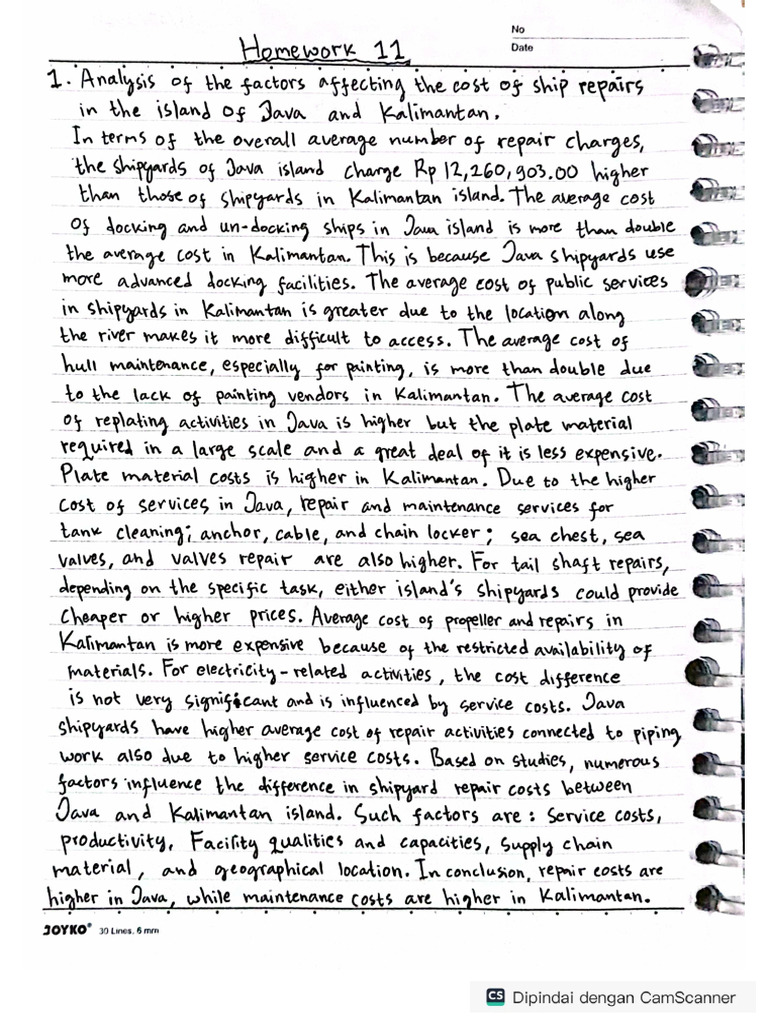 No
Date
Homework 11
1. Analysis of the factors affecting the cost of ship repairs
in the island of Java and Kalimantan.
In terms of the overall average number of repair charges,
the shipyards of Java island charge Rp 12,260,903.00 higher
than those of shipyards in Kalimantan island. The average cost
of docking and un-docking ships in Java island is more than double
the average cost in Kalimantan. This is because Java shipyards use
more advanced docking facilities. The average cost of public services
in shipyards in Kalimantan is greater due to the location along
the river makes it more difficult to access. The average cost of
hull maintenance, especially for painting, is more than double due
to the lack of painting vendors in Kalimantan. The average cost
of replating activities in Java is higher but the plate material
required in a large scale and a great deal of it is less expensive.
Plate material costs is higher in Kalimantan. Due to the higher
cost of services in Java, repair and maintenance services for
tank cleaning; anchor, cable, and chain locker; sea chest, sea
valves, and valves repair are also higher. For tail shaft repairs,
depending on the specific task, either island's shipyards could provide
cheaper or higher prices. Average cost of propeller and repairs in
Kalimantan is more expensive because of the restricted availability of
materials. For electricity-related activities, the cost difference
is not very significant and is influenced by service costs. Java
shipyards have higher average cost of repair activities connected to piping
work also due to higher service costs. Based on studies, numerous
factors influence the difference in shipyard repair costs between
Java and Kalimantan island. Such factors are: Service costs,
productivity, Facility qualities and capacities, supply chain
material, and geographical location. In conclusion, repair costs are
higher in Java, while maintenance costs are higher in Kalimantan.
JOYKO® 30 Lines, 6 mm
CS Dipindai dengan CamScanner